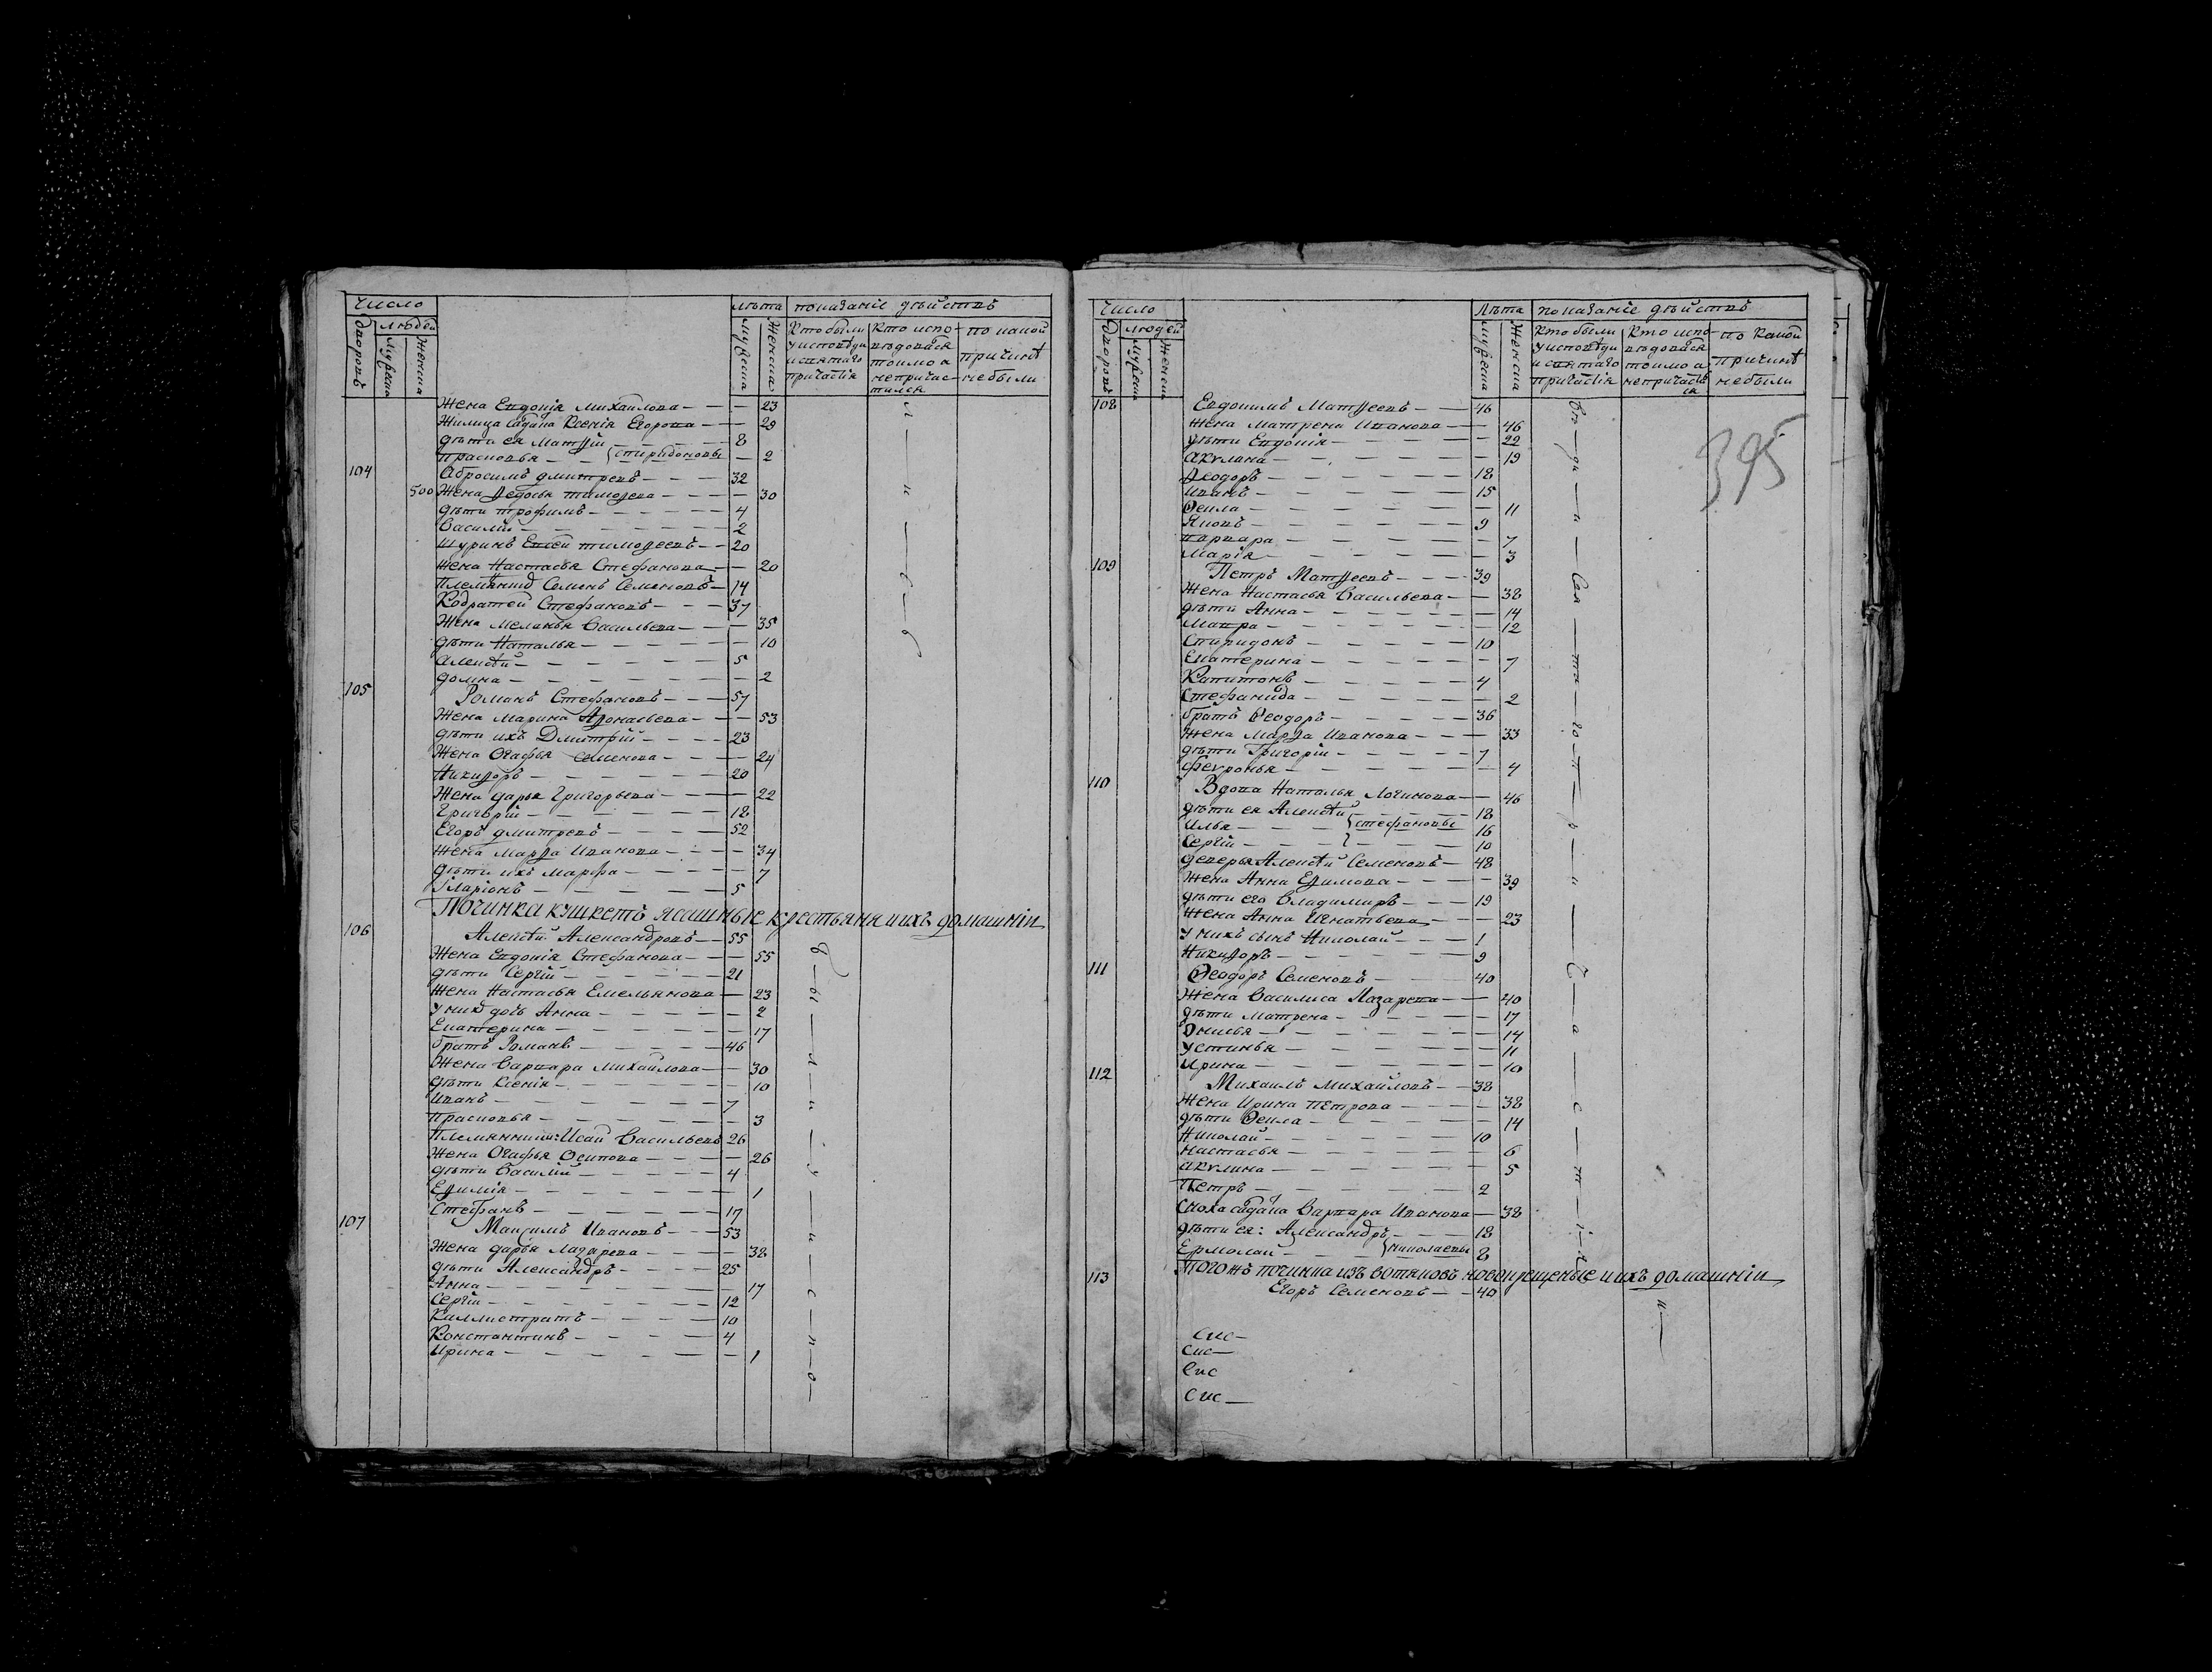 число
дворовъ
людей
мужеска
женска
лѣта
мужеска
женска
показаніе дѣйствъ
кто были у исповѣди и святаго причастія
кто исповѣдовался токмо а непричастился
по какой причинѣ небыли
Жена Евдокія Михайлова — — 23
Жилица салдатка Ксенія Егорова — — 29
дѣти ея Матѳѣй — — 8
Прасковья — — спиридоновы — 2
104 Абросимъ дмитревъ — — 32
500 Жена Ѳедосья тимоѳева — — 30
дѣти трофимъ — — 4
Василій — — 2
шуринъ Евсей тимоѳеевъ — — 20
жена Настасья Стефанова — — 20
Племянникъ Семенъ Семеновъ — 14
Кодратей Стефановъ — — 37
Жена меланья Васильева — — 35
дѣти Наталья — — 10
алексѣй — — 5
домна — — 2
105 Романъ Стефановъ — — 57
Жена Марина Аѳонасьева — — 53
дѣти ихъ Дмитрій — — 23
Жена Огафья семенова — — 24
Никиѳоръ — — 20
Жена дарья Григорьева — — 22
Григорій — — 18
Егоръ дмитревъ — — 52
жена Марѳа Иванова — — 34
дѣти ихъ Марфа — — 7
Иларіонъ — — 5
Починка кушкетъ ясашные крестьяня и ихъ домашніи
106 Алексѣй Александровъ — 55
Жена Евдокія Стефанова — — 55
дѣти Сергій — — 21
жена Настасья Емельянова — 23
у них дочь Анна — — 2
Екатерина — — 17
братъ Романъ — — 46
Жена Варвара Михайлова — — 30
дѣти Ксенія — — 10
Иванъ — — 7
Прасковья — — 3
Племянникъ: Исай Васильевъ 26
Жена Огафья Осипова — — 26
дѣти Василій — — 4
Еѳимія — — 1
Стефанъ — — 17
107 Максимъ Ивановъ — — 53
Жена дарья Лазарева — — 38
дѣти Александръ — — 25
Анна — — 17
Сергій — — 12
Каллистратъ — — 10
Константинъ — — 4
Ирина — — 1
и — и — с — ь
б — ы — л — и — у — и — с — п — о —
число
дворовъ
людей
мужеска
женска
лѣта
мужеска
женска
показаніе дѣйствъ
кто были у исповѣди и святаго причастія
кто исповѣдовался токмо а непричастился
по какой причинѣ небыли
395
108 Евдокимъ Матѳеевъ — — 46
жена Матрена Иванова — — 46
дѣти Евдокія — — 22
Акулина — — 19
Ѳеодоръ — — 18
Иванъ — — 15
Ѳекла — — 11
Яковъ — — 9
варвара — — 7
Марія — — 3
109 Петръ Матѳеевъ — — 39
Жена Настасья Васильева — — 38
дѣти Анна — — 14
Мавра — — 12
Спиридонъ — — 10
Екатерина — — 7
Капитонъ — — 4
Стефанида — — 2
братъ Ѳеодоръ — — 36
Жена Марѳа Иванова — — 33
дѣти Григорій — — 7
Февронья — — 4
110 Вдова Наталья Логинова — — 46
дѣти ея Алексѣй — — 18
Илья — — стефановы 16
Сергій — — 10
деверья Алексѣй Семеновъ — 48
Жена Анна Еѳимова — — 39
дѣти его Владимиръ — — 19
Жена Анна Игнатьева — — 23
у нихъ сынъ Николай — — 1
Никиѳоръ — — 9
111 Ѳеодоръ Семеновъ — 40
Жена Василиса Лазарева — — 40
дѣти Матрена — — 17
Окилья — — 14
устинья — — 11
Ирина — — 10
112 Михаилъ Михайловъ — — 38
Жена Ирина Петрова — — 38
дѣти Ѳекла — — 14
Николай — — 10
настасья — — 6
акулина — — 5
Петръ — — 2
Сноха салдатка Варвара Иванова — 38
дѣти ея: Александръ — — 18
Ермолай — — николаевы 8
Тогожъ починка изъ вотяковъ новокрещеные и ихъ домашніи
113 Егоръ Семеновъ — — 40
вѣ — ди — и — Свя — та — го — п — р — и — ч — а — с — т — і — я
и —
сис —
сис —
сис
сис —